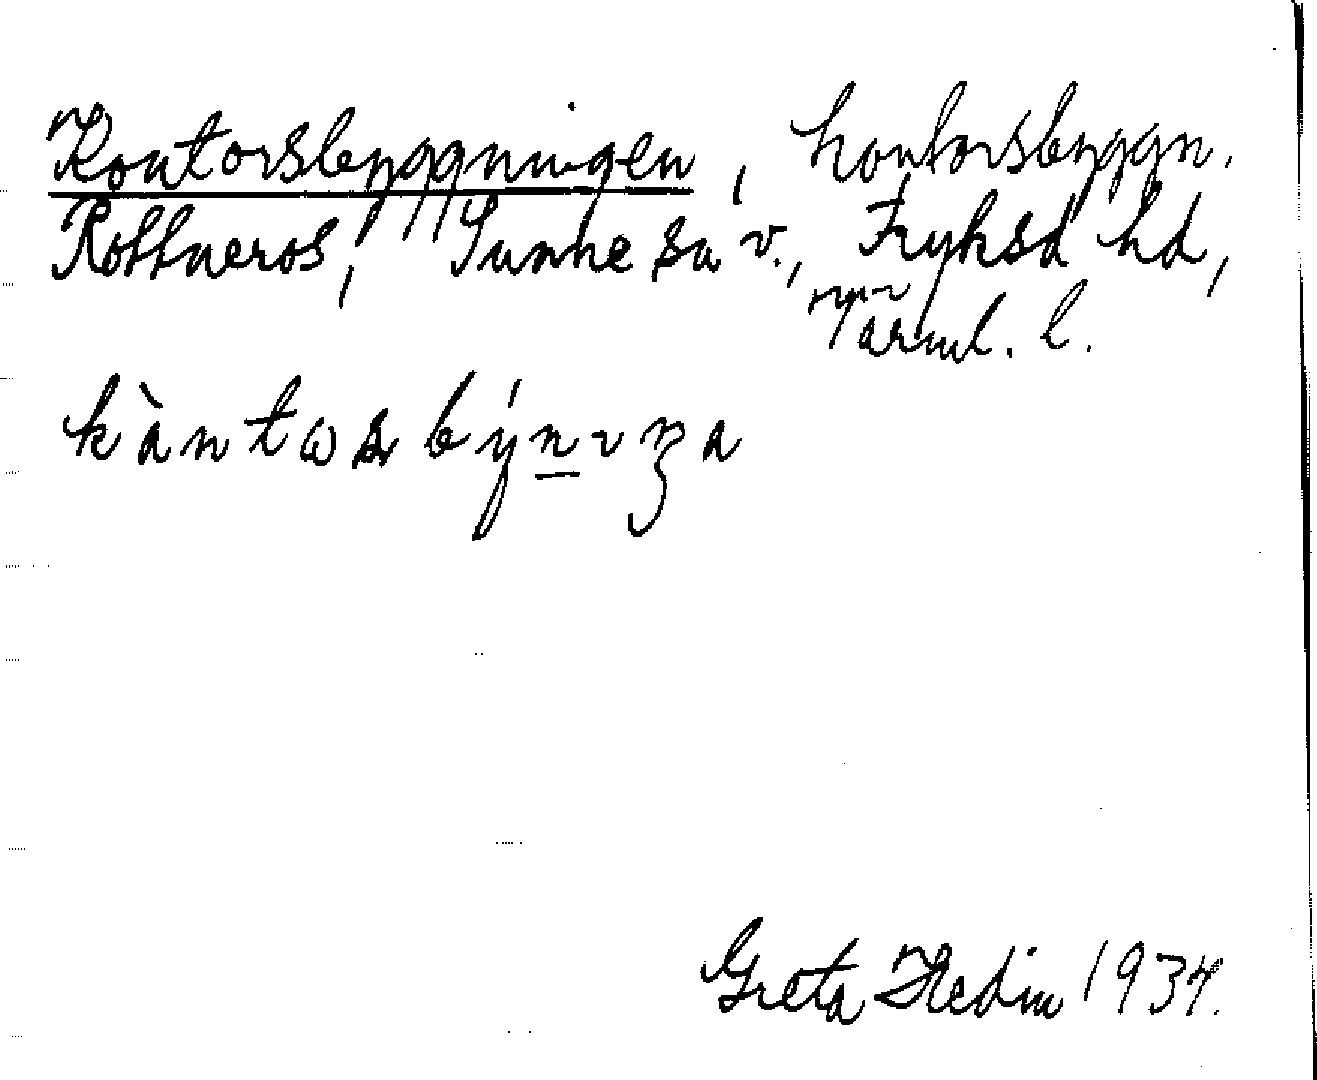 Kontorsbyggningen, kontorsbyggn.
Rottneros, Sunne sn v., Fryksd hd,
Värml. l.
kàntωsbýnıŋa
Greta Hedin 1934.